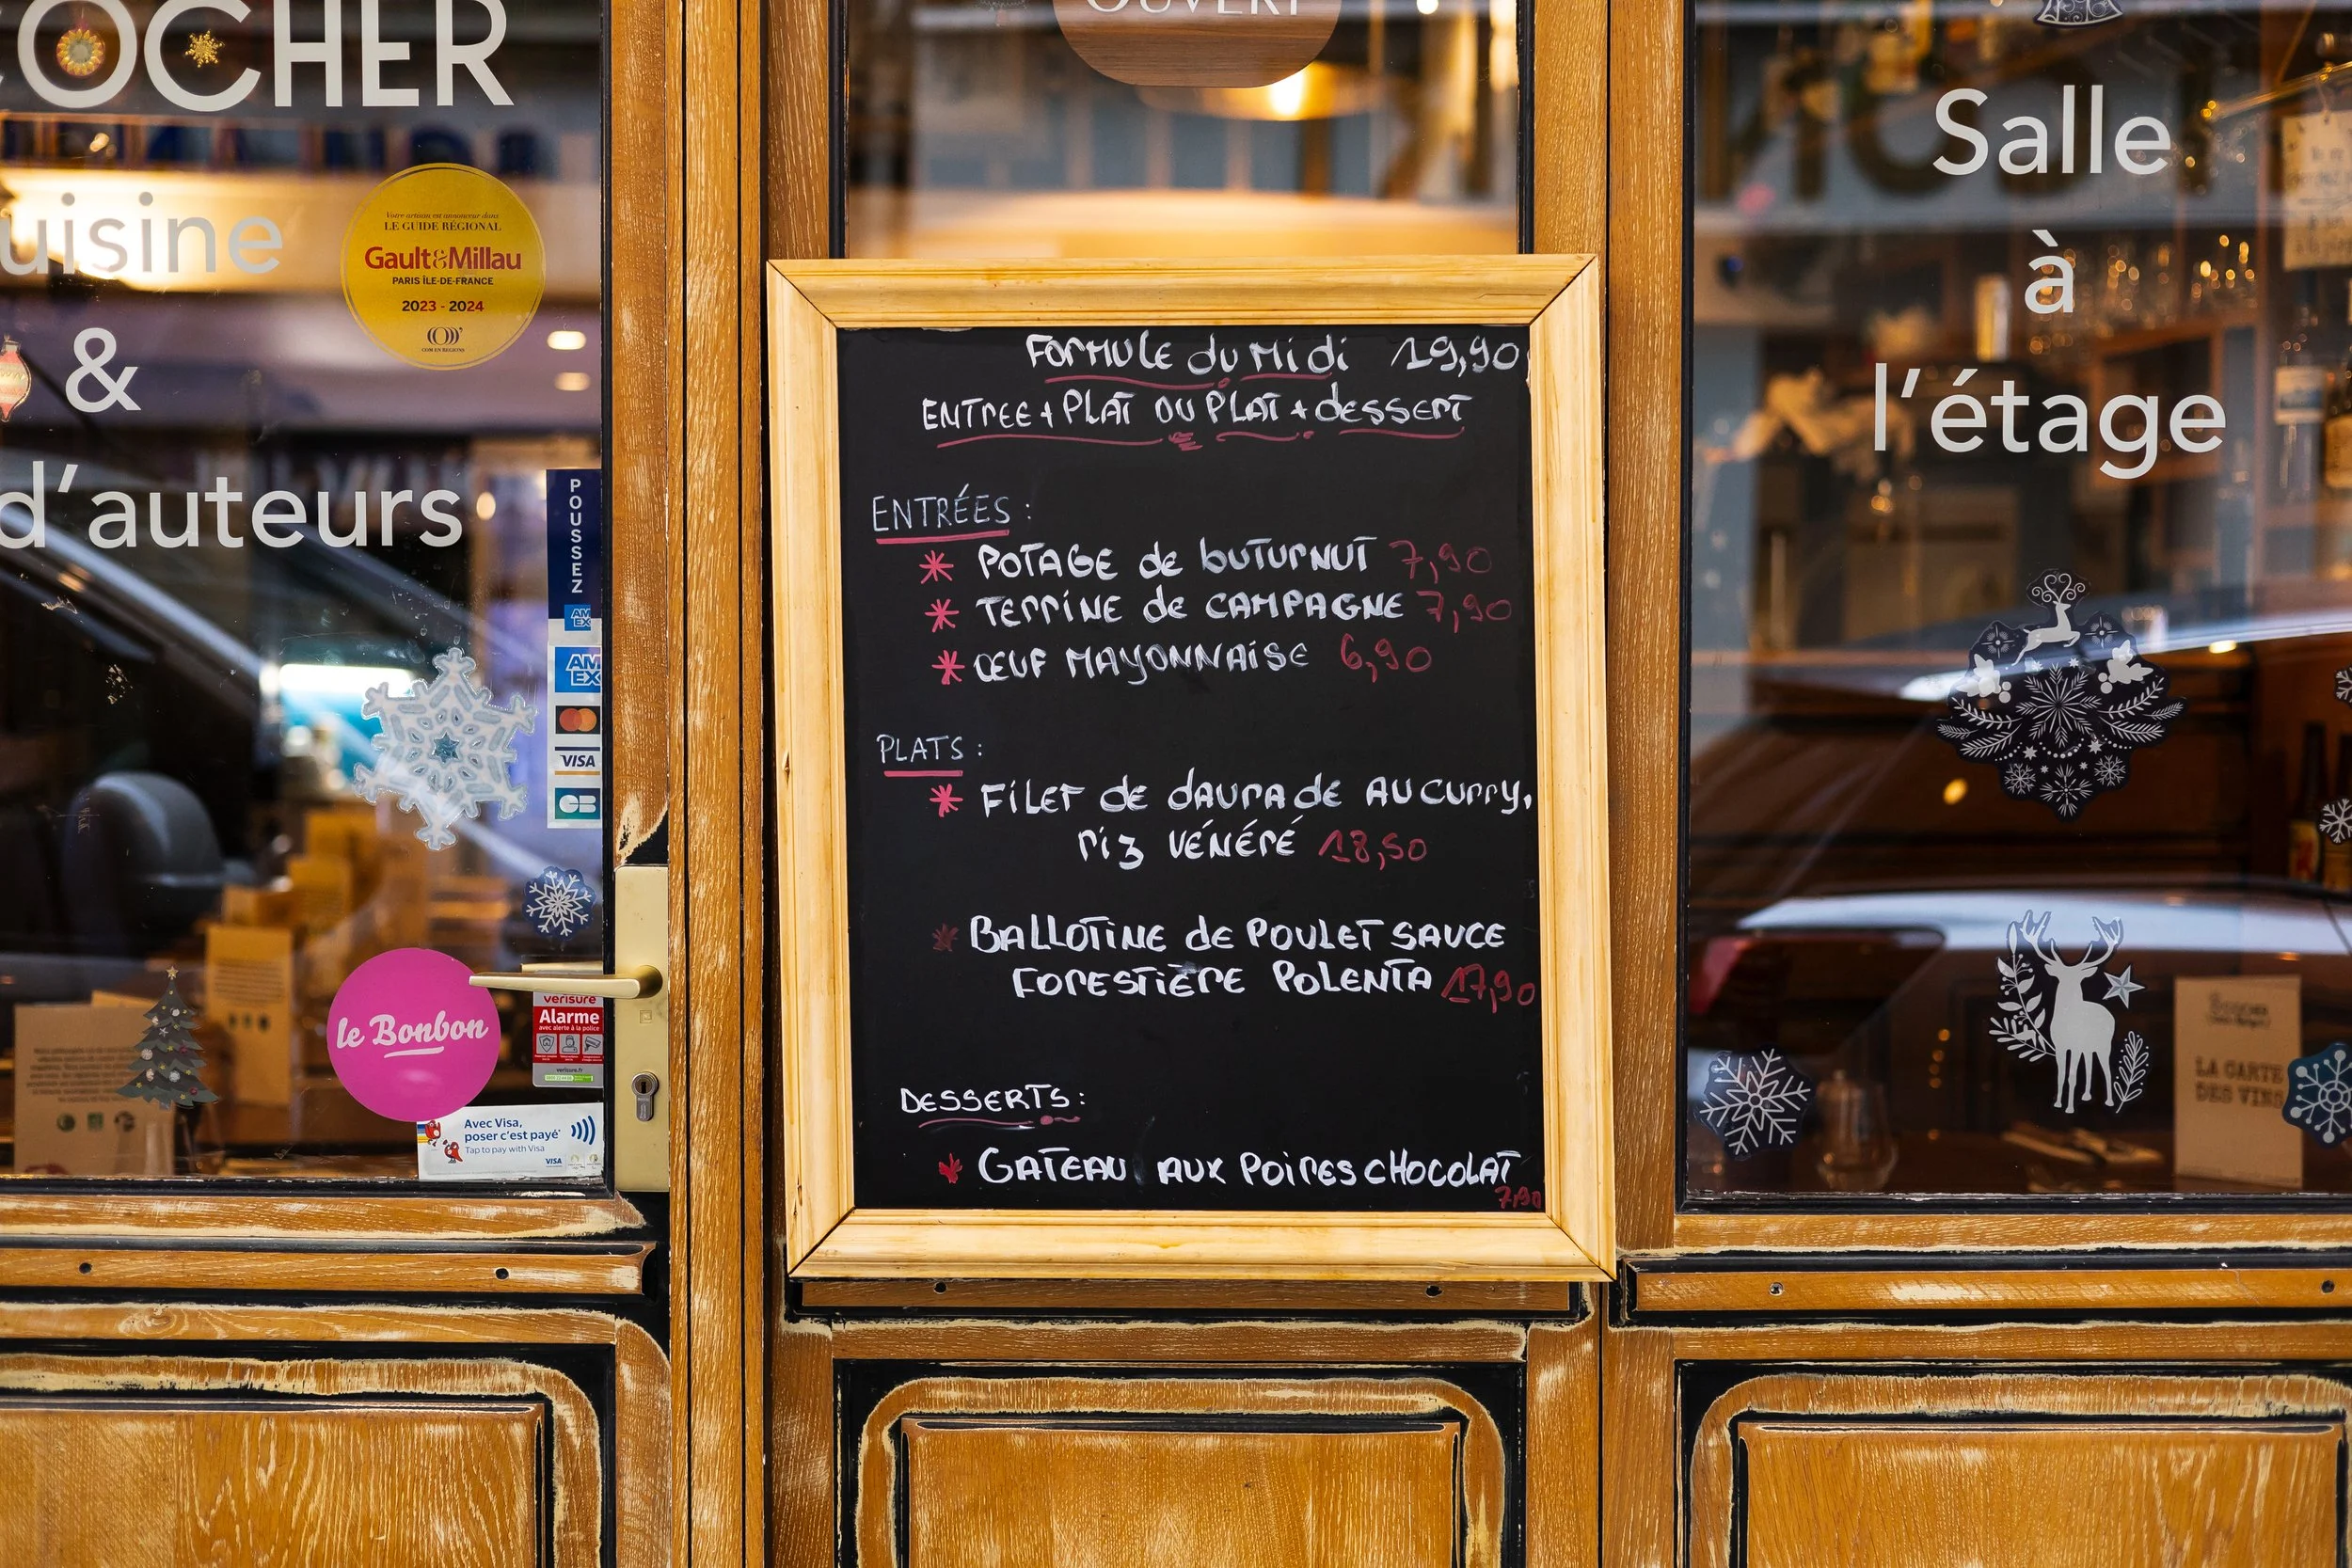 OCHER
uisine
&
d'auteurs
Votre artisan est annonceur dans
LE GUIDE RÉGIONAL
Gault&Millau
PARIS ÎLE-DE-FRANCE
2023 - 2024
POUSSEZ
AM
EX
AM
EX
VISA
CB
le Bonbon
verisure
Alarme
avec alerte à la police
verisure.fr
Avec Visa,
poser c'est payé
Tap to pay with Visa
VISA
OUVERT
FORMULE du Midi 19,90
ENTREE + PLAT OU PLAT + dESSERT
ENTRÉES :
* POTAGE de buTURNUT 7,90
* TERRINE de CAMPAGNE 7,90
* ŒUF MAYONNAiSE 6,90
PLATS :
* FiLET de dAURAdE AU CURRY,
Riz VÉNÉRÉ 18,50
* BALLOTiNE de POULET SAUCE
FORESTiÈRE POLENTA 17,90
DESSERTS :
* GATEAU AUX POiRES CHOCOLAT
7,90
Salle
à
l'étage
LA CARTE
DES VINS